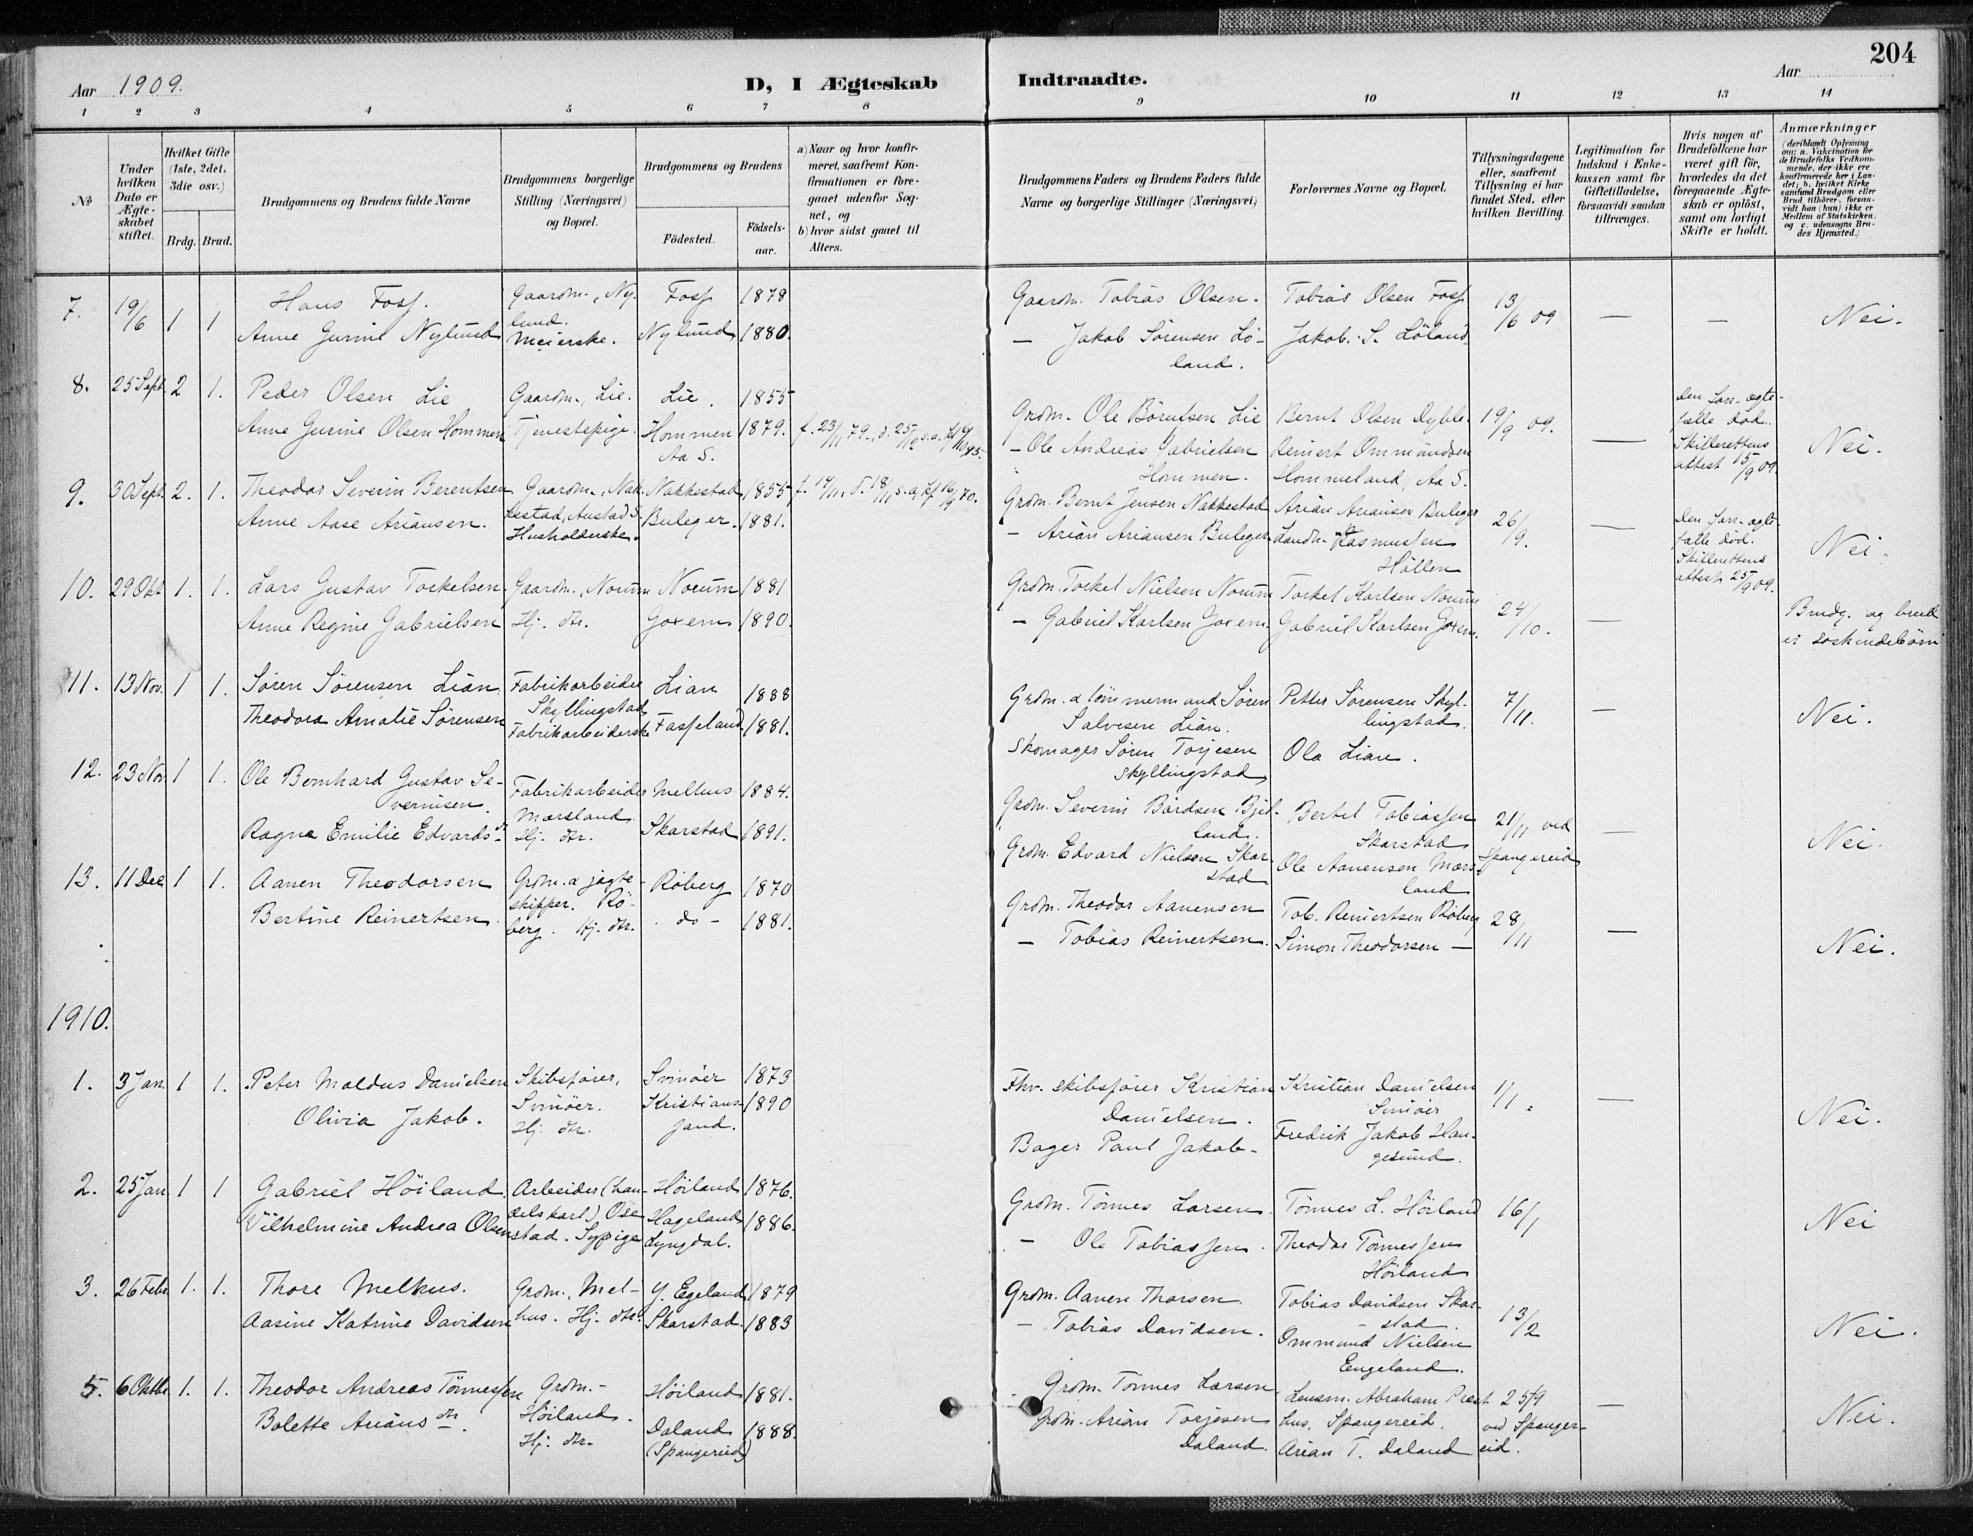 204
Aar 1909.
D, I Ægteskab Indtraadte.
Aar
1 2 3 4 5 6 7 8 9 10 11 12 13 14
№
Under hvilken Dato er Ægteskabet stiftet.
Hvilket Gifte (1ste, 2det, 3die osv.)
Brdg. Brud.
Brudgommens og Brudens fulde Navne
Brudgommens borgerlige Stilling (Næringsvei) og Bopæl.
Brudgommens og Brudens
Fødested. Fødselsaar.
a) Naar og hvor konfirmeret, saafremt Konfirmationen er foregaaet udenfor Sognet, og
b) hvor sidst gaaet til Alters.
Brudgommens Faders og Brudens Faders fulde Navne og borgerlige Stillinger (Næringsvei)
Forlovernes Navne og Bopæl.
Tillysningsdagene eller, saafremt Tillysning ei har fundet Sted, efter hvilken Bevilling.
Legitimation for Indskud i Enkekassen samt for Giftetilladelse, forsaavidt saadan tiltrænges.
Hvis nogen af Brudefolkene har været gift før, hvorledes da det foregaaende Ægteskab er opløst, samt om lovligt Skifte er holdt.
Anmærkninger (deriblandt Oplysning om: a. Vakcination for de Brudefolks Vedkommende, der ikke ere konfirmerede her i Landet; b. hvilket Kirkesamfund Brudgom eller Brud tilhører, forsaavidt han (hun) ikke er Medlem af Statskirken, og c. udensogns Brudes Hjemsted.)
7. 19/6 1 1 Hans Foss. Gaardm., Nylund. Foss 1879 Gaardm. Tobias Olsen. Tobias Olsen Foss 13/6 09 — — Nei.
Anne Gurine Nylund Meierske. Nylund 1880. — Jakob Sørensen Løland. Jakob. S. Løland
8. 25 Sept. 2 1. Peder Olsen Lie Gaardm., Lie. Lie. 1855 Grdm. Ole Berntsen Lie Bernt Olsen Dyble 19/9 09. — Den forr. ægtefælle død. Skifterettens attest 15/9 09. Nei.
Anne Gurine Olsen Hommen Tjenestepige. Hommen Aa S. 1879. f. 23/11 79., d. 25/12 s.a. kf 6/10 95. — Ole Andreas Gabrielsen Hommen. Reinert Ommundsen Hommeland, Aa S.
9. 30 Sept. 2. 1. Theodor Severin Berentsen Gaardm., Nakkestad, Austad S. Nakkestad 1855 f. 14/11 d. 18/11 s.a. kf 16/9 70. Grdm. Bernt Jensen Nakkestad Arian Ariansen Buleger 26/9. — Den forr. ægtefælle død. Skifterettens attest 25/9 09. Nei.
Anne Aase Ariansen. Husholderske. Buleger. 1881. — Arian Ariansen Buleger Landh. Rasmussen Hållen
10. 29 Okt 1. 1. Lars Gustav Torkelsen Gaardm., Norum Norum 1881 Grdm. Torkel Nielsen Norum Torkel Karlsen Norum 24/10. — Brudg. og brud er søskendebørn
Anne Regine Gabrielsen Hj. dtr. Goxem 1890. — Gabriel Karlsen Joxem. Gabriel Karlsen Goxem.
11. 13 Nov. 1 1. Søren Sørensen Lian Fabrikarbeider Skyllingstad Lian 1888 Grdm. & tømmermand Søren Salvesen Lian. Petter Sørensen Skyllingstad. 7/11. — Nei.
Theodora Amalie Sørensen Fabrikarbeiderske Fasseland 1881. Skomager Søren Torjesen Skyllingstad Ola Lian.
12. 23 Nov. 1 1. Ole Bernhard Gustav Severinsen. Fabrikarbeider Marsland. Melhus 1884. Grdm. Severin Bårdsen Bjelland. Bertel Tobiassen Skarstad 21/11 ved Spangereid — Nei.
Ragna Emilie Edvardsdr. Hj. dtr. Skarstad 1891. Grdm. Edvard Nielsen Skarstad Ole Aanensen Marsland
13. 11 Dec. 1 1. Aanen Theodorsen Grdm. & jagteskipper. Røberg. Røberg 1870 Grdm. Theodor Aanensen Tob. Reinertsen Røberg 28/11 — Nei.
Bertine Reinertsen. Hj. dtr. do - 1881. — Tobias Reinertsen. Simon Theodorsen —
1910.
1. 3 Jan. 1 1. Peter Maldus Danielsen Skibsfører, Svinøer. Svinøer 1873 Fhv. skibsfører Kristian Danielsen. Kristian Danielsen Svinøer 1/1. — Nei.
Olivia Jakob. Hj. dtr. Kristianssand. 1890 Bager Paul Jakob. Fredrik Jakob Haugesund.
2. 25 Jan. 1 1 Gabriel Høiland. Arbeider (handelskart.) Osestad. Høiland 1876. Grdm. Tønnes Larsen. Tønnes L. Høiland 16/1 Nei
Vilhelmine Andrea Olsen Sypige Hageland Lyngdal. 1886. — Ole Tobiassen. Theodor Tønnessen Høiland
3. 26 Febr. 1. 1. Thore Melhus. Grdm., Melhus. Y. Egeland 1879 Grdm. Aanen Thorsen. Tobias Davidsen Skarstad. 13/2 Nei.
Aasine Katrine Davidsen Hj. dtr. Skarstad 1883 — Tobias Davidsen. Ommund Nielsen Engeland.
5. 6 Oktbr. 1. 1. Theodor Andreas Tønnessen Grdm. Høiland. Høiland 1881. Grdm. Tønnes Larsen Lensm. Abraham Presthus, Spangereid. 25/9 ved Spangereid. — Nei.
Bolette Ariansdtr. Hj. dtr. Daland (Spangereid) 1888. Grdm. Arian Torjesen Daland. Arian T. Daland